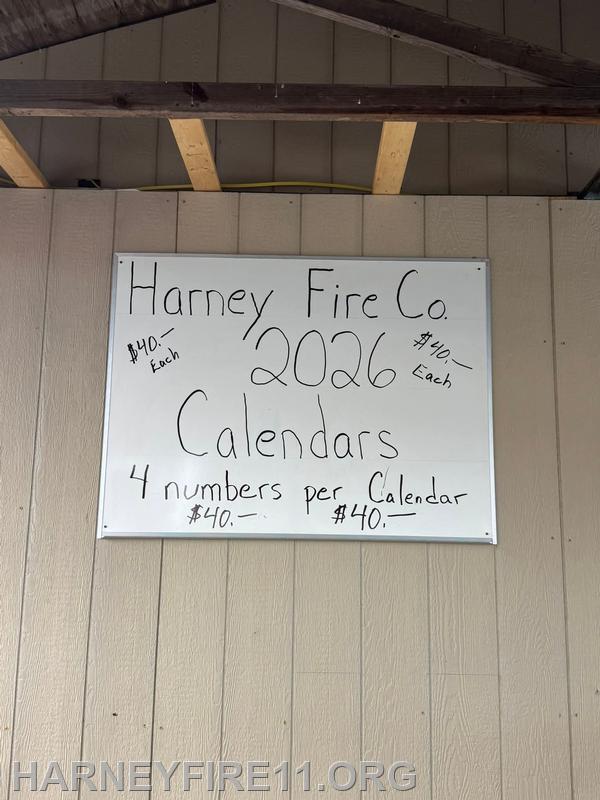 Harney Fire Co.
$40.— Each
2026
$40.— Each
Calendars
4 numbers per Calendar
$40.— $40.—
HARNEYFIRE11.ORG